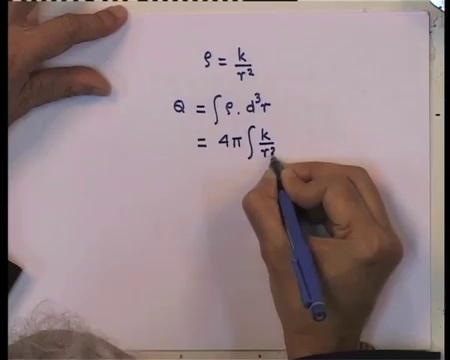 ρ = k/r²
Q = ∫ρ. d³r
= 4π∫ k/r²